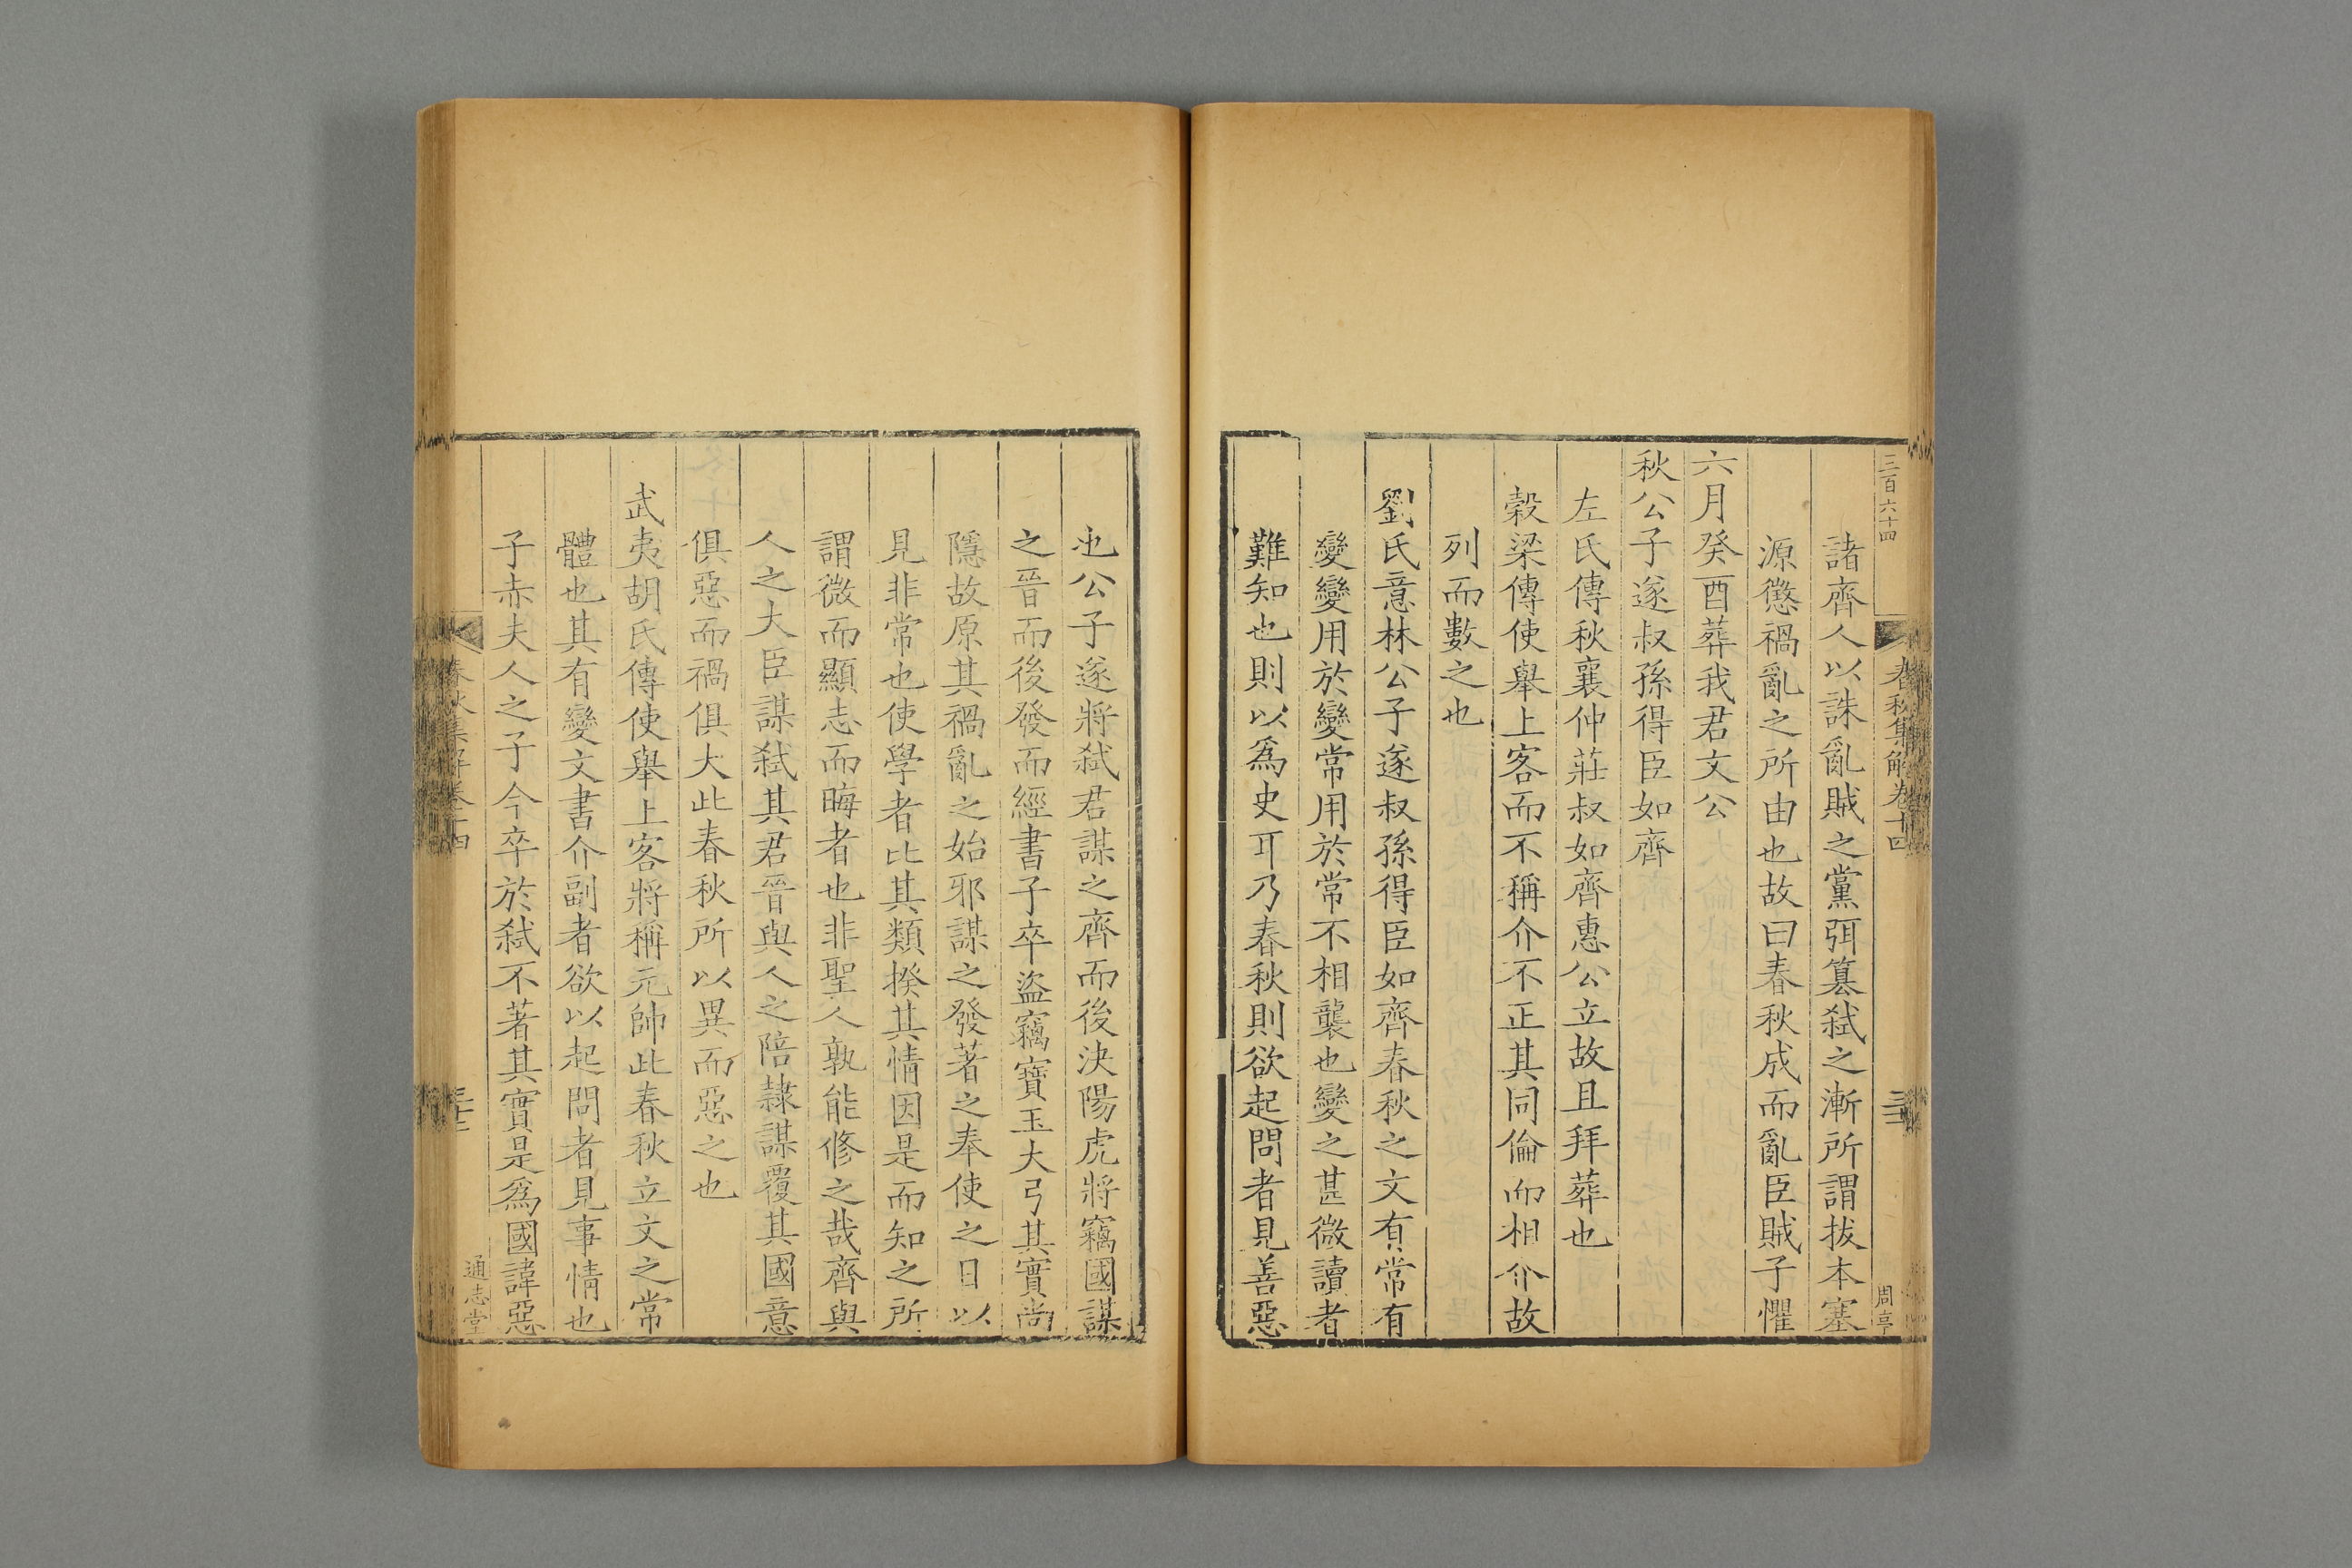 三百六十四
春秋集解卷十四
周亭
諸齊人以誅亂賊之黨弭篡弒之漸所謂拔本塞
源懲禍亂之所由也故曰春秋成而亂臣賊子懼
六月癸酉葬我君文公
秋公子遂叔孫得臣如齊
左氏傳秋襄仲莊叔如齊惠公立故且拜葬也
穀梁傳使舉上客而不稱介不正其同倫而相介故
列而數之也
劉氏意林公子遂叔孫得臣如齊春秋之文有常有
變變用於變常用於常不相襲也變之甚微讀者
難知也則以為史耳乃春秋則欲起問者見善惡
也公子遂將弒君謀之齊而後決陽虎將竊國謀
之晉而後發而經書子卒盜竊寶玉大弓其實尚
隱故原其禍亂之始邪謀之發著之奉使之日以
見非常也使學者比其類揆其情因是而知之所
謂微而顯志而晦者也非聖人孰能修之哉齊與
人之大臣謀弒其君晉與人之陪隸謀覆其國意
俱惡而禍俱大此春秋所以異而惡之也
武夷胡氏傳使舉上客將稱元帥此春秋立文之常
體也其有變文書介副者欲以起問者見事情也
子赤夫人之子今卒於弒不著其實是爲國諱惡
春秋集解卷十四
通志堂